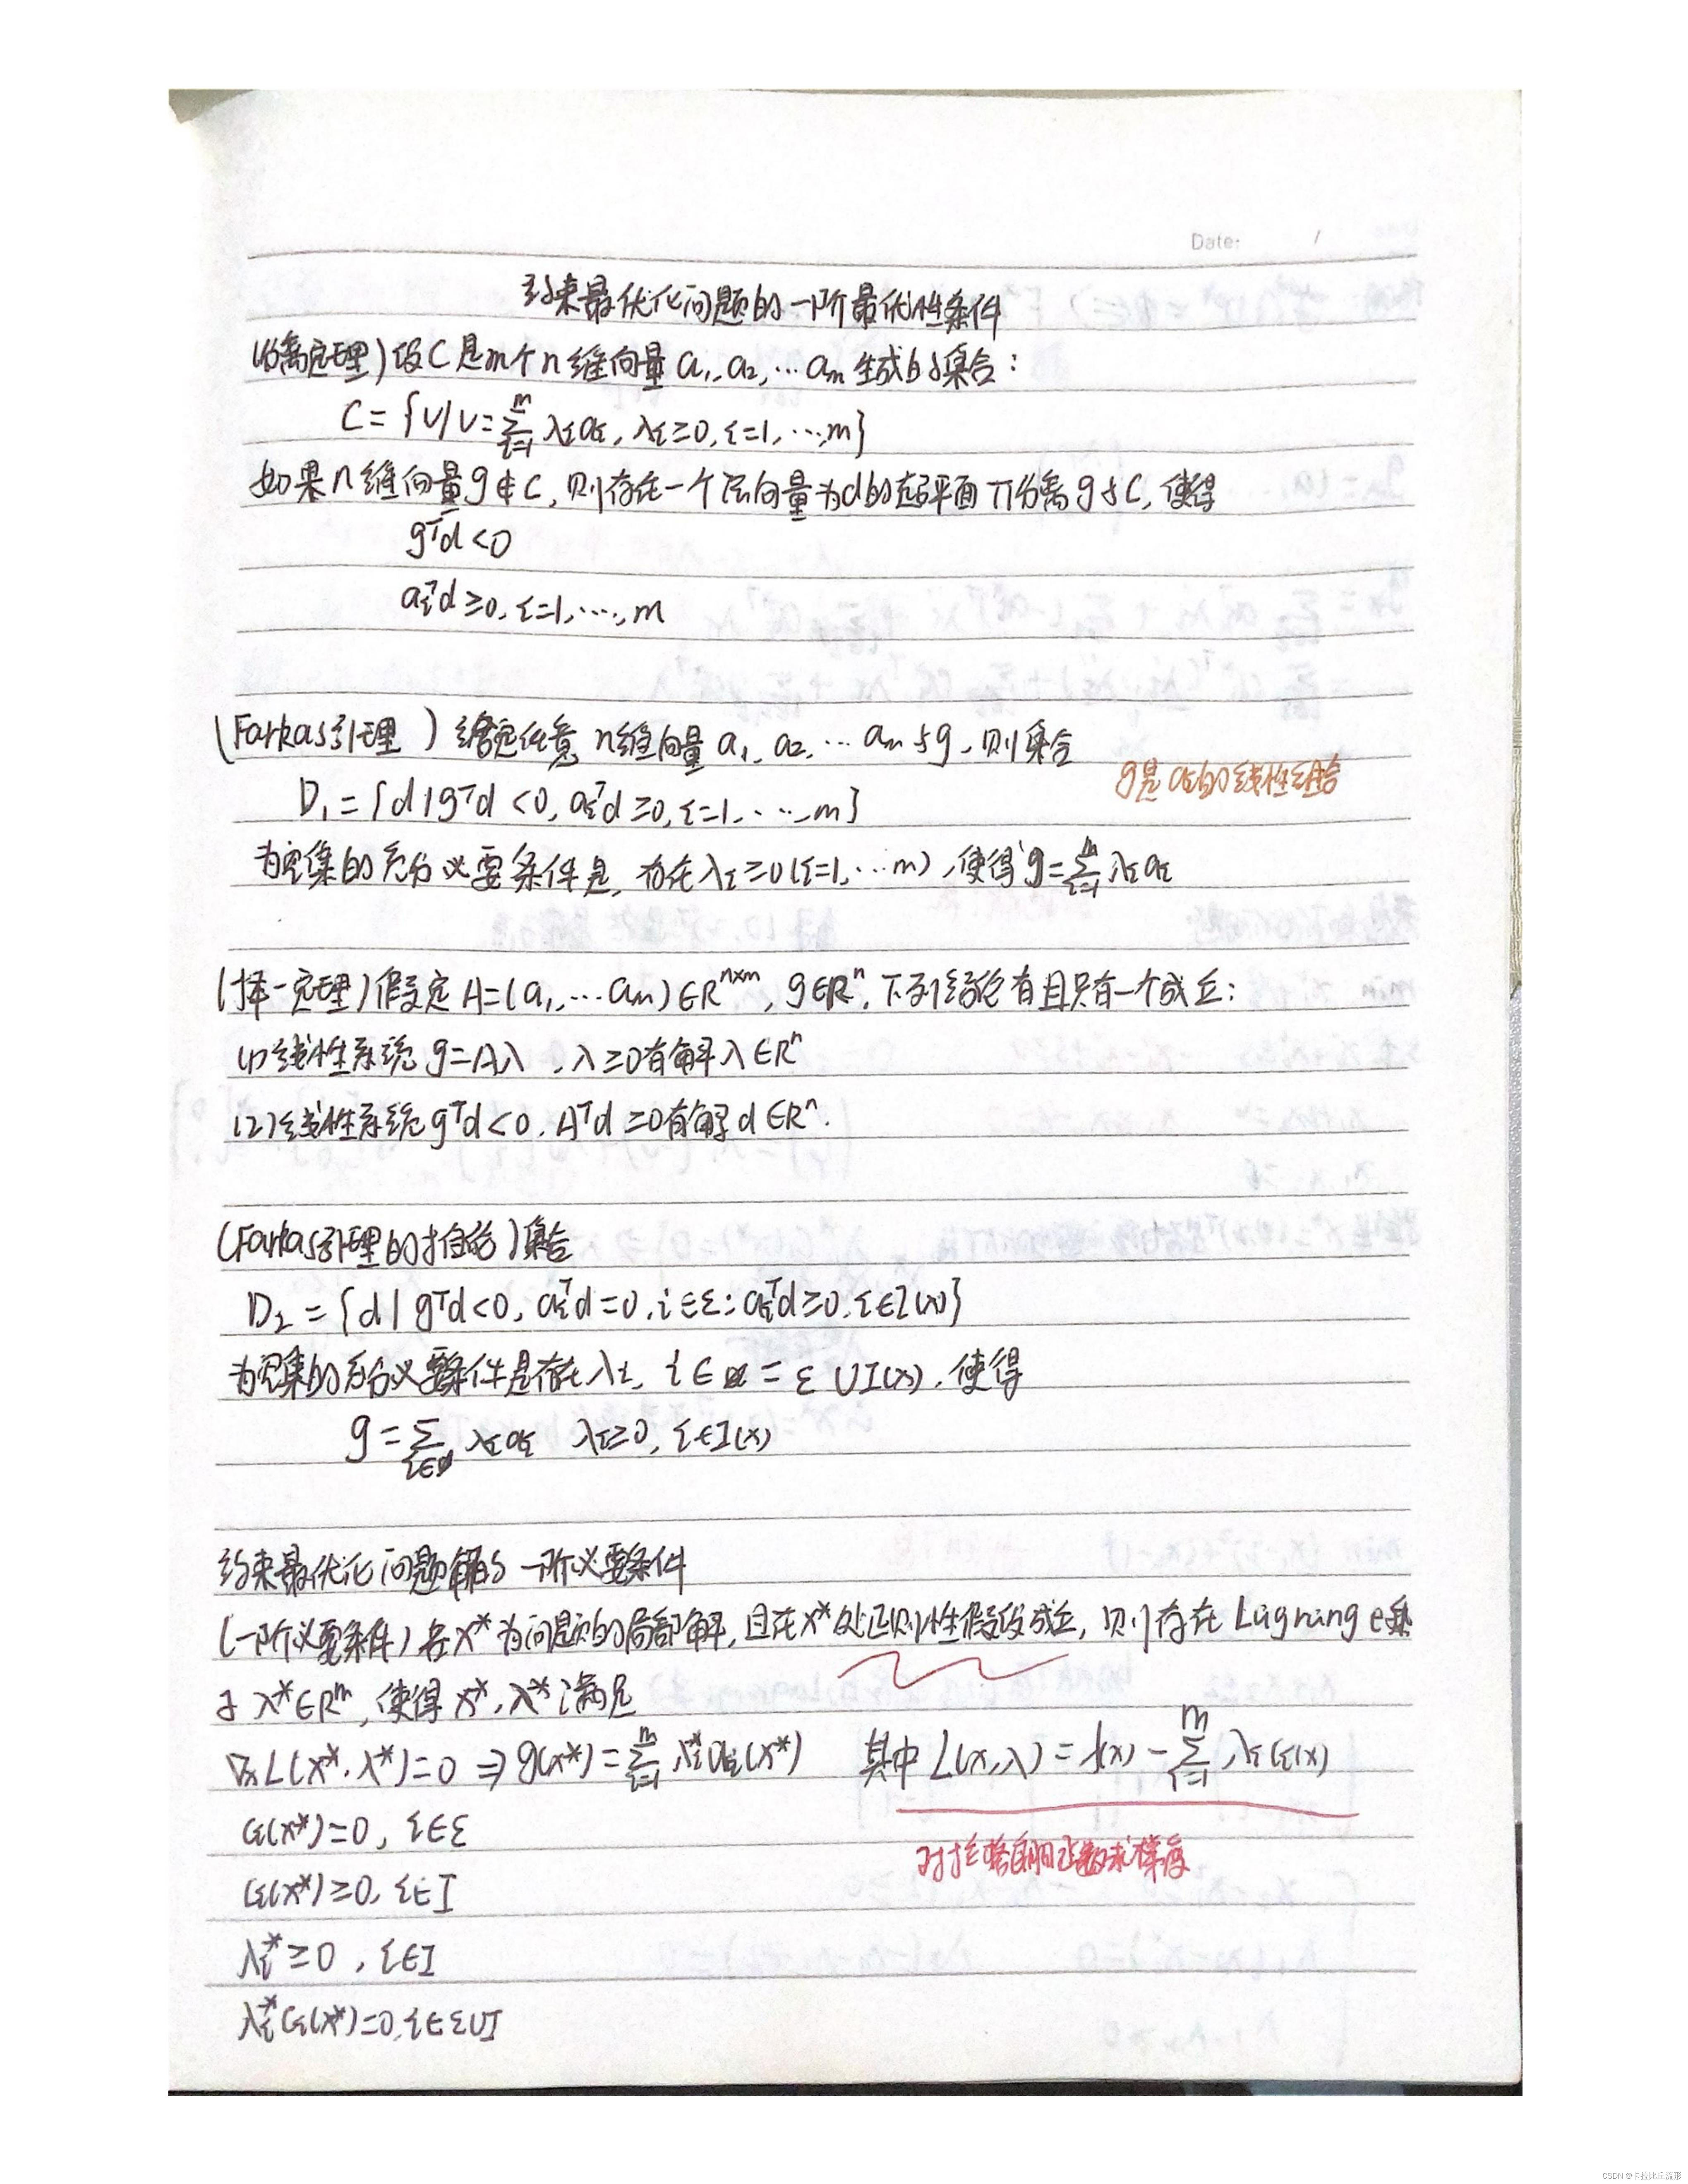 Date: /
约束最优化问题的一阶最优性条件
(分离定理) 设C是m个n维向量 a₁, a₂, … aₘ 生成的集合:
C = {v | v = Σ_{i=1}^{m} λᵢaᵢ, λᵢ≥0, i=1, …, m}
如果n维向量g∉C, 则存在一个法向量为d的超平面π分离g与C, 使得
gᵀd < 0
aᵢᵀd ≥ 0, i=1, …, m
(Farkas引理) 给定任意 n维向量 a₁, a₂, … aₘ与g, 则集合
g是aᵢ的线性组合
D₁ = {d | gᵀd < 0, aᵢᵀd ≥ 0, i=1, …, m}
为空集的充分必要条件是, 存在λᵢ≥0 (i=1, … m), 使得 g = Σ_{i=1}^{m} λᵢaᵢ
(择一定理) 假定 A=(a₁, … aₘ)∈Rⁿˣᵐ, g∈Rⁿ, 下列结论有且只有一个成立:
(1) 线性系统 g=Aλ, λ≥0有解λ∈Rⁿ
(2) 线性系统 gᵀd<0, Aᵀd≥0有解d∈Rⁿ.
(Farkas引理的推论) 集合
D₂ = {d | gᵀd<0, aᵢᵀd=0, i∈ε; aᵢᵀd≥0, i∈I(x)}
为空集的充分必要条件是存在λᵢ, i∈ = ε∪I(x), 使得
g = Σ_{i∈} λᵢaᵢ λᵢ≥0, i∈I(x)
约束最优化问题解的一阶必要条件
(一阶必要条件) 若x*为问题的局部解, 且在x*处正则性假设成立, 则存在Lagrange乘
子 λ*∈Rᵐ, 使得 x*, λ*满足
∇ₓL(x*, λ*)=0 ⇒ g(x*) = Σ_{i=1}^{m} λᵢ*aᵢ(x*) 其中 L(x,λ) = f(x) − Σ_{i=1}^{m} λᵢcᵢ(x)
cᵢ(x*)=0, i∈ε
对拉格朗日函数求梯度
cᵢ(x*)≥0, i∈I
λᵢ*≥0, i∈I
λᵢ*cᵢ(x*)=0, i∈ε∪I
CSDN @卡拉比丘流形